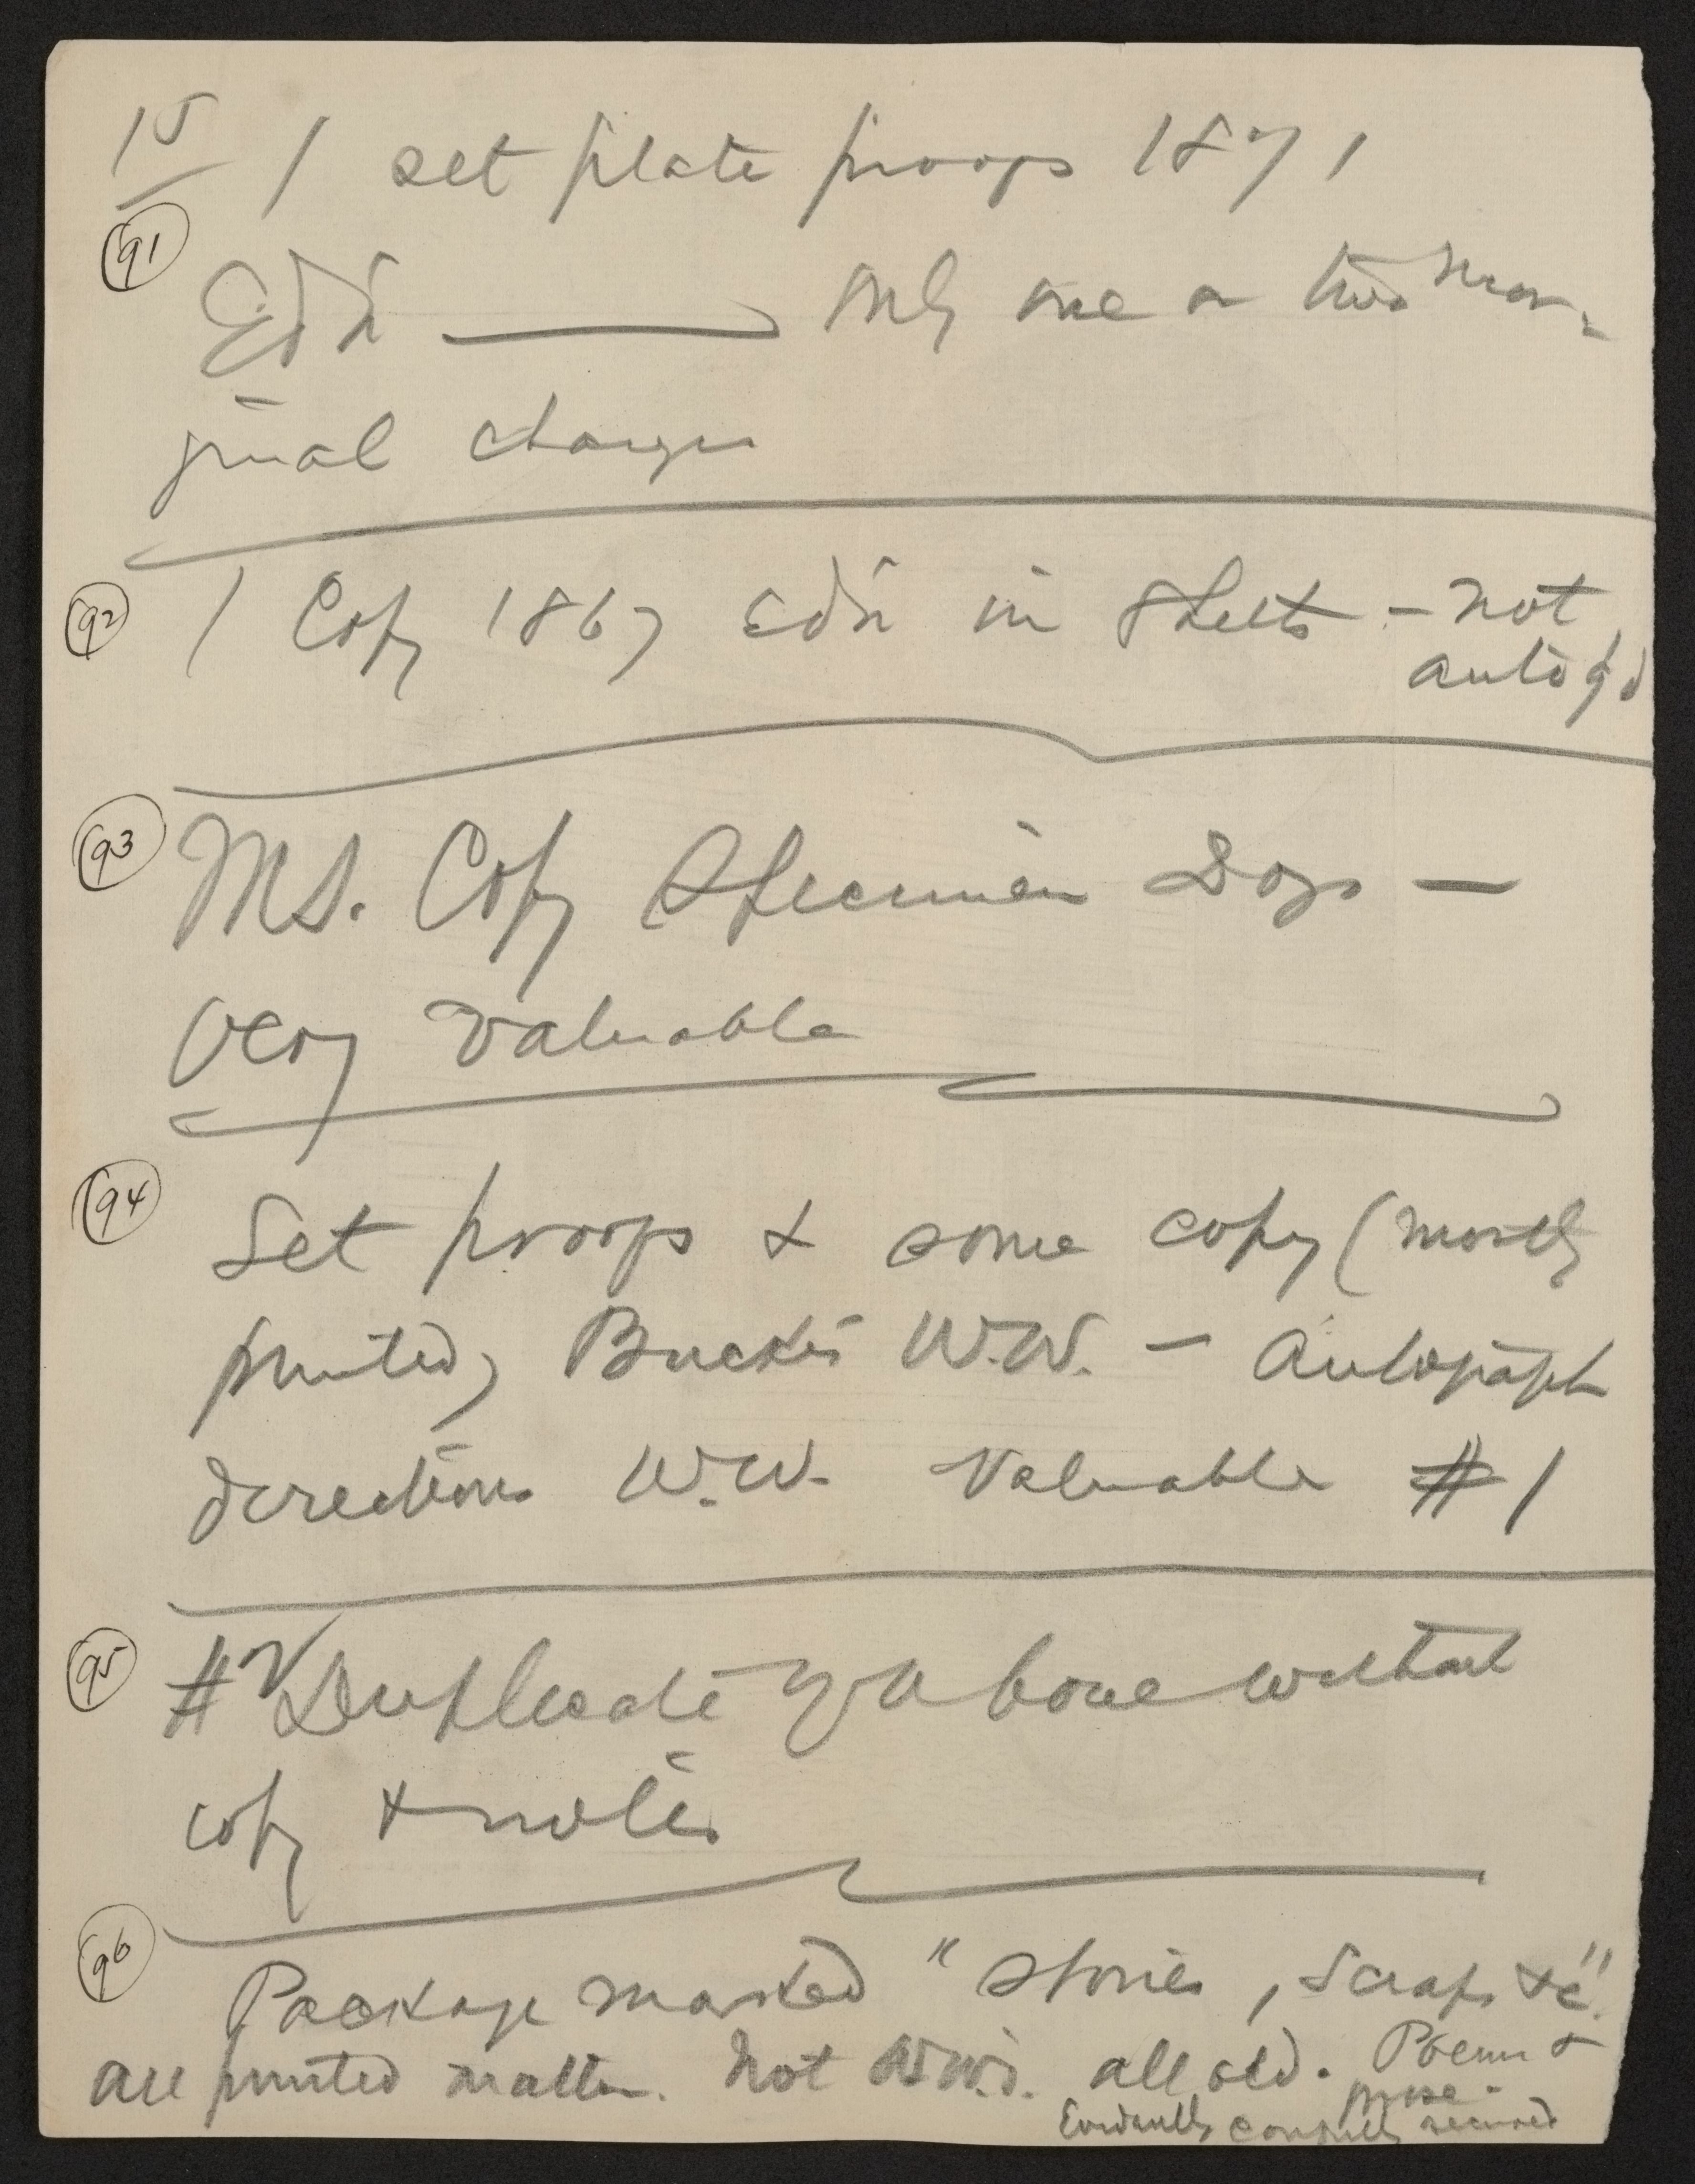 15 1 set plate proofs 1871
(91)
Ed'n — Only one or two mar-
ginal changes
(92) 1 Copy 1867 Ed'n in sheets - not
autog'd
(93) MS. Copy Specimen Days —
Very valuable
(94)
Set proofs & some copy (mostly
printed) Bucke's W.W. — Autograph
directions W.W. Valuable #1
(95) #2 Duplicate of above without
copy & notes
(96)
Package marked "Stories, Scraps &c".
all printed matter. Not W.W.'s. all old. Poems &
prose.
Evidently carefully secured